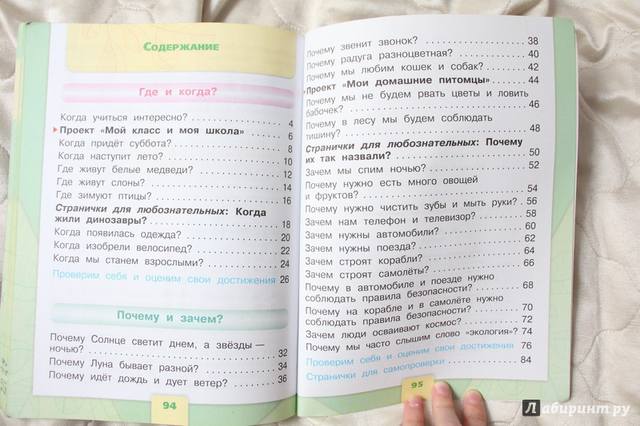 Содержание
Где и когда?
Когда учиться интересно? 4
Проект «Мой класс и моя школа» 6
Когда придёт суббота? 8
Когда наступит лето? 10
Где живут белые медведи? 12
Где живут слоны? 14
Где зимуют птицы? 16
Странички для любознательных: Когда
жили динозавры? 18
Когда появилась одежда? 20
Когда изобрели велосипед? 22
Когда мы станем взрослыми? 24
Проверим себя и оценим свои достижения 26
Почему и зачем?
Почему Солнце светит днем, а звёзды —
ночью? 32
Почему Луна бывает разной? 34
Почему идёт дождь и дует ветер? 36
94
Почему звенит звонок? 38
Почему радуга разноцветная? 40
Почему мы любим кошек и собак? 42
Проект «Мои домашние питомцы» 44
Почему мы не будем рвать цветы и ловить
бабочек? 46
Почему в лесу мы будем соблюдать
тишину? 48
Странички для любознательных: Почему
их так назвали? 50
Зачем мы спим ночью? 52
Почему нужно есть много овощей
и фруктов? 54
Почему нужно чистить зубы и мыть руки? 56
Зачем нам телефон и телевизор? 58
Зачем нужны автомобили? 60
Зачем нужны поезда? 62
Зачем строят корабли? 64
Зачем строят самолёты? 66
Почему в автомобиле и поезде нужно
соблюдать правила безопасности? 68
Почему на корабле и в самолёте нужно
соблюдать правила безопасности? 70
Зачем люди осваивают космос? 72
Почему мы часто слышим слово «экология»? 74
Проверим себя и оценим свои достижения 76
Странички для самопроверки 84
95
Лабиринт.ру